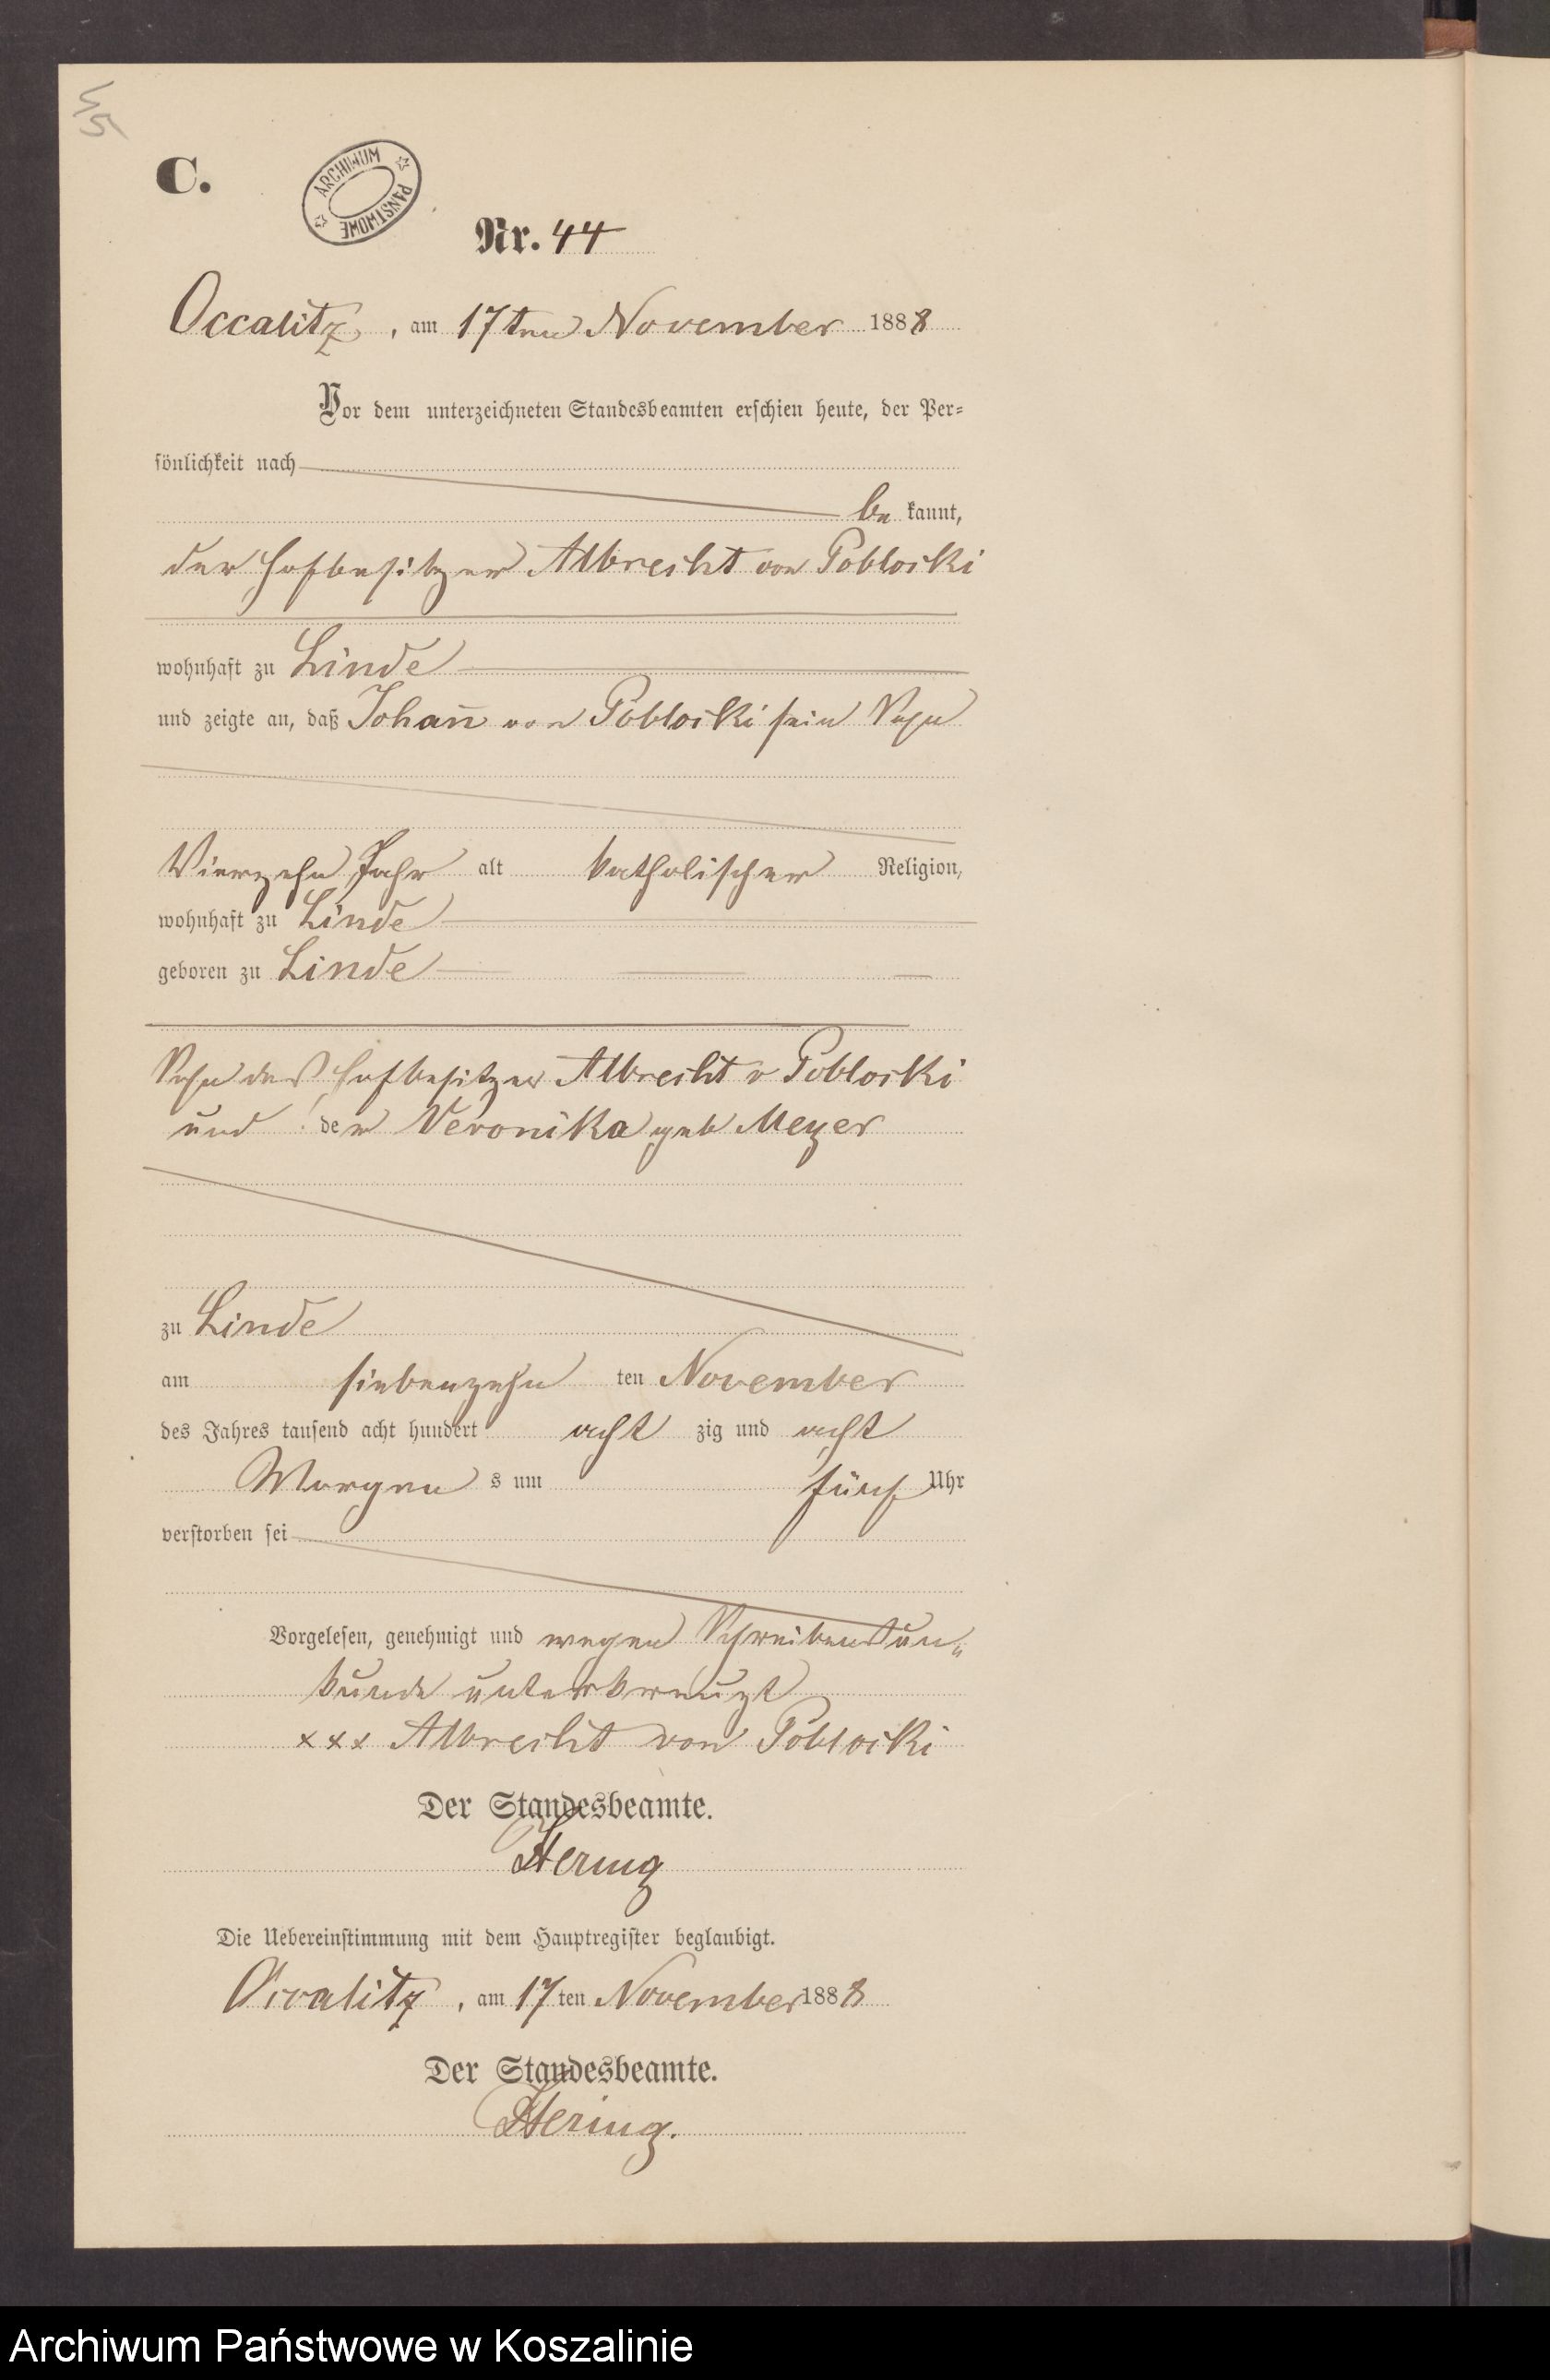 C.
ARCHIWUM PAŃSTWOWE
Nr. 44
Occalitz, am 17ten November 1888
Vor dem unterzeichneten Standesbeamten erschien heute, der Per=
sönlichkeit nach
be kannt,
der Hofbesitzer Albrecht von Poblocki
wohnhaft zu Linde
und zeigte an, daß Johan̄ von Poblocki sein Sohn
Vierzehn Jahr alt katholischer Religion,
wohnhaft zu Linde
geboren zu Linde
Sohn des Hofbesitzer Albrecht v Poblocki
und der Veronika geb Meyer
zu Linde
am siebenzehn ten November
des Jahres tausend acht hundert acht zig und acht
Morgen s um fünf Uhr
verstorben sei
Vorgelesen, genehmigt und wegen Schreibensun„
kunde unterkreuzt
xxx Albrecht von Poblocki
Der Standesbeamte.
Hering
Die Uebereinstimmung mit dem Hauptregister beglaubigt.
Occalitz, am 17 ten November 1888
Der Standesbeamte.
Hering.
Archiwum Państwowe w Koszalinie